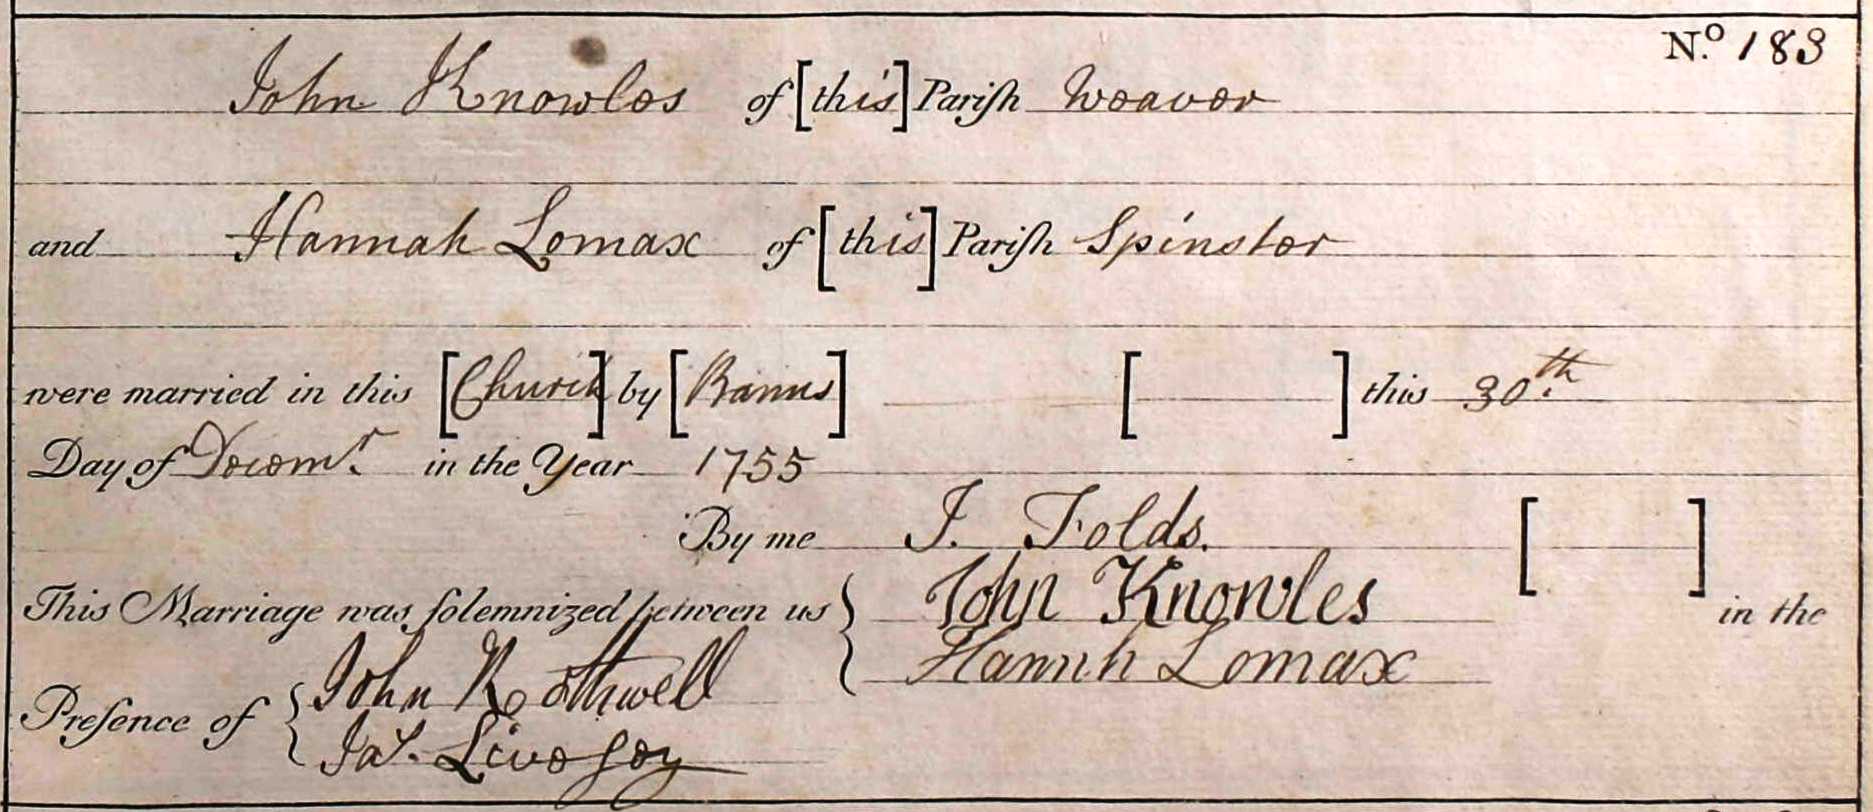 N.º 183
John Knowles of [this] Pariſh Weaver
and Hannah Lomax of [this] Pariſh Spinster
were married in this [Church] by [Banns] [ ] this 30th.
Day of Decemr. in the Year 1755
By me J. Folds. [ ]
This Marriage was ſolemnized between us { John Knowles in the
Hannh Lomax
Preſence of { John Rothwell
Jas. Liveſey